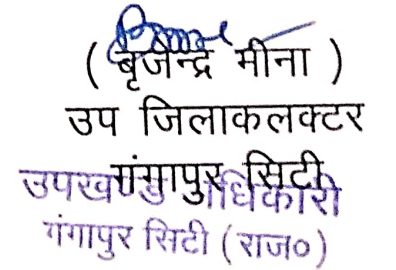 ( बृजेन्द्र मीना )
उप जिलाकलक्टर
गंगापुर सिटी
उपखण्ड अधिकारी
गंगापुर सिटी (राज०)